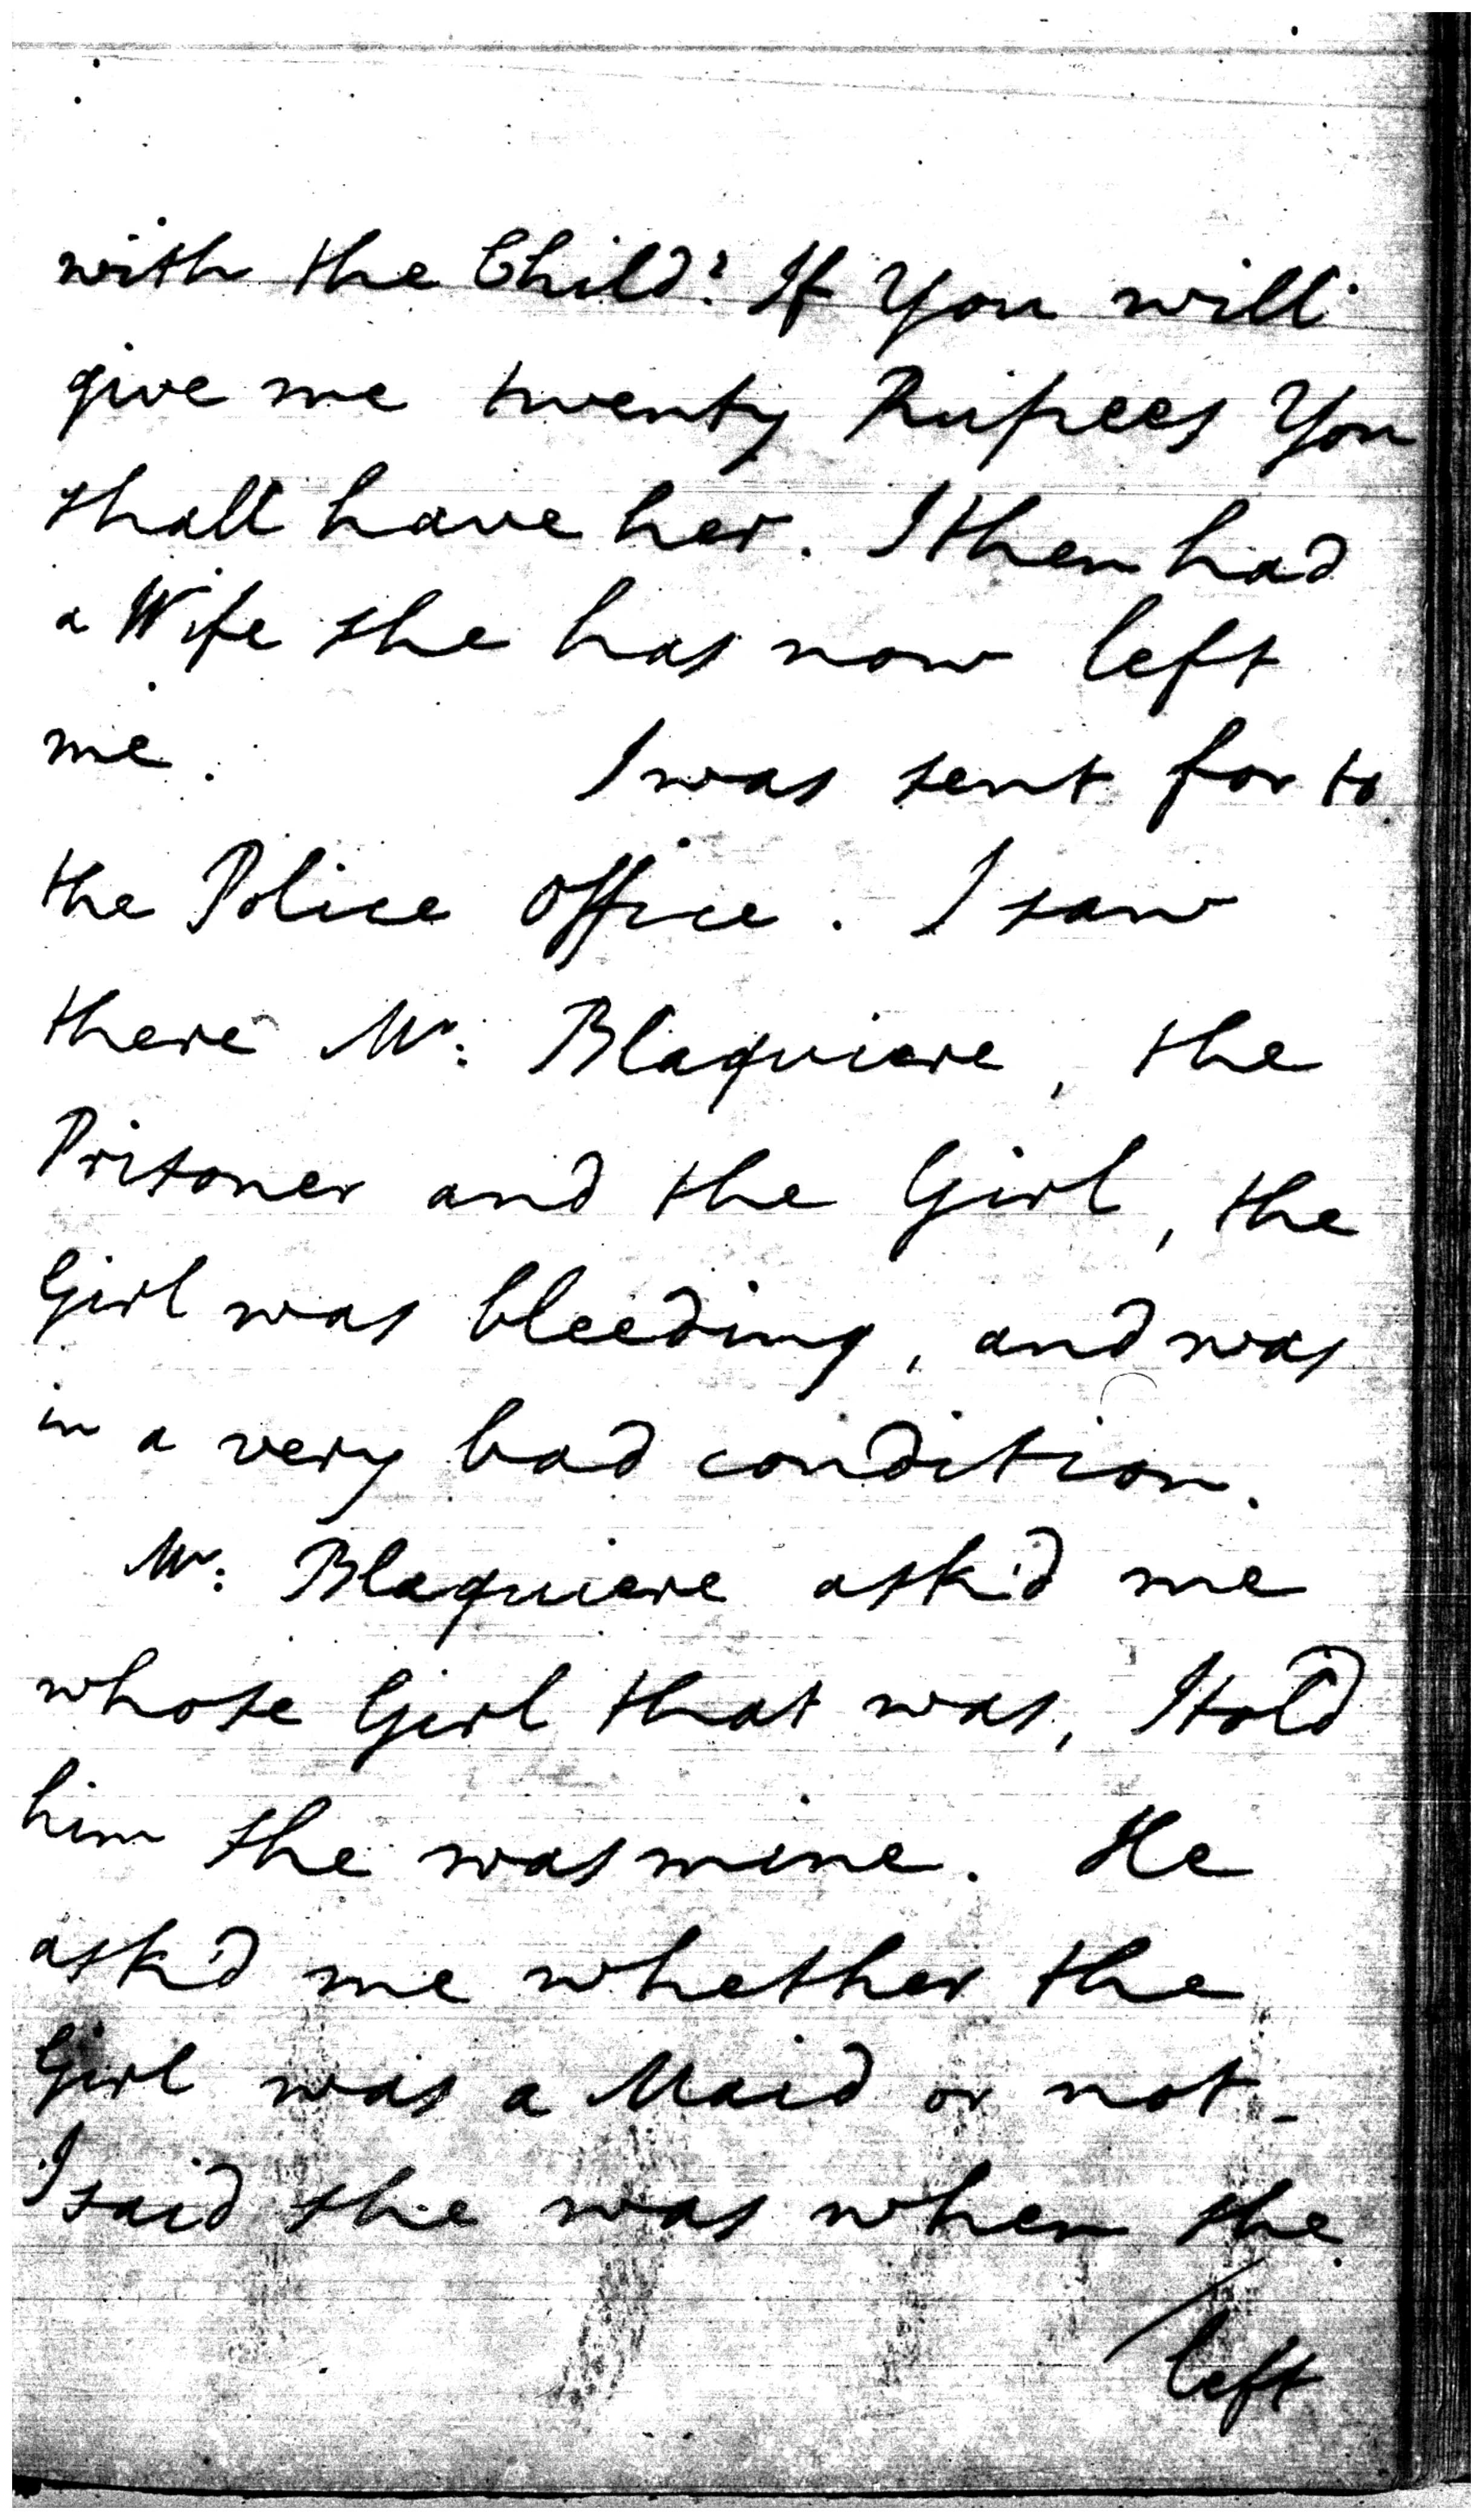 with the Child? If You will
give me twenty Rupees You
shall have her. I then had
a Wife she has now left
me. I was sent for to
the Police Office. I saw
there Mr: Blaquiere, the
Prisoner and the Girl, the
Girl was bleeding, and was
in a very bad condition.
Mr: Blaquiere ask'd me
whose Girl that was, I told
him she was mine. He
ask'd me whether the
Girl was a Maid or not -
I said she was when she
left